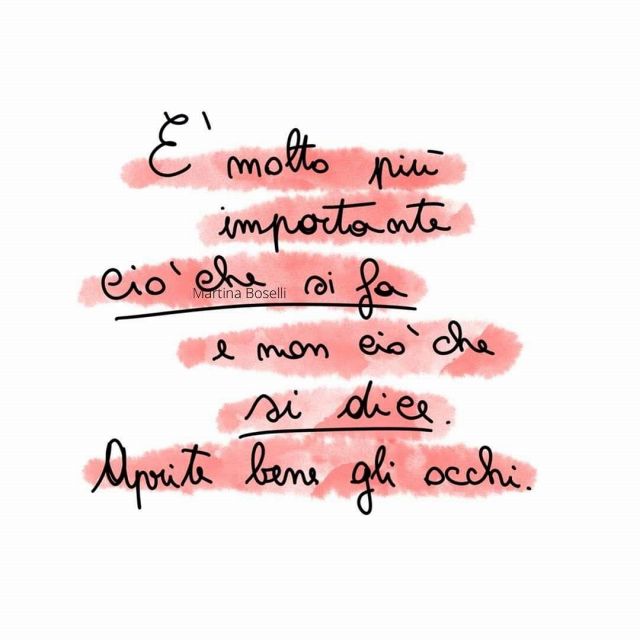 E' molto più
importante
ciò che si fa
Martina Boselli
e non ciò che
si dice.
Aprite bene gli occhi.